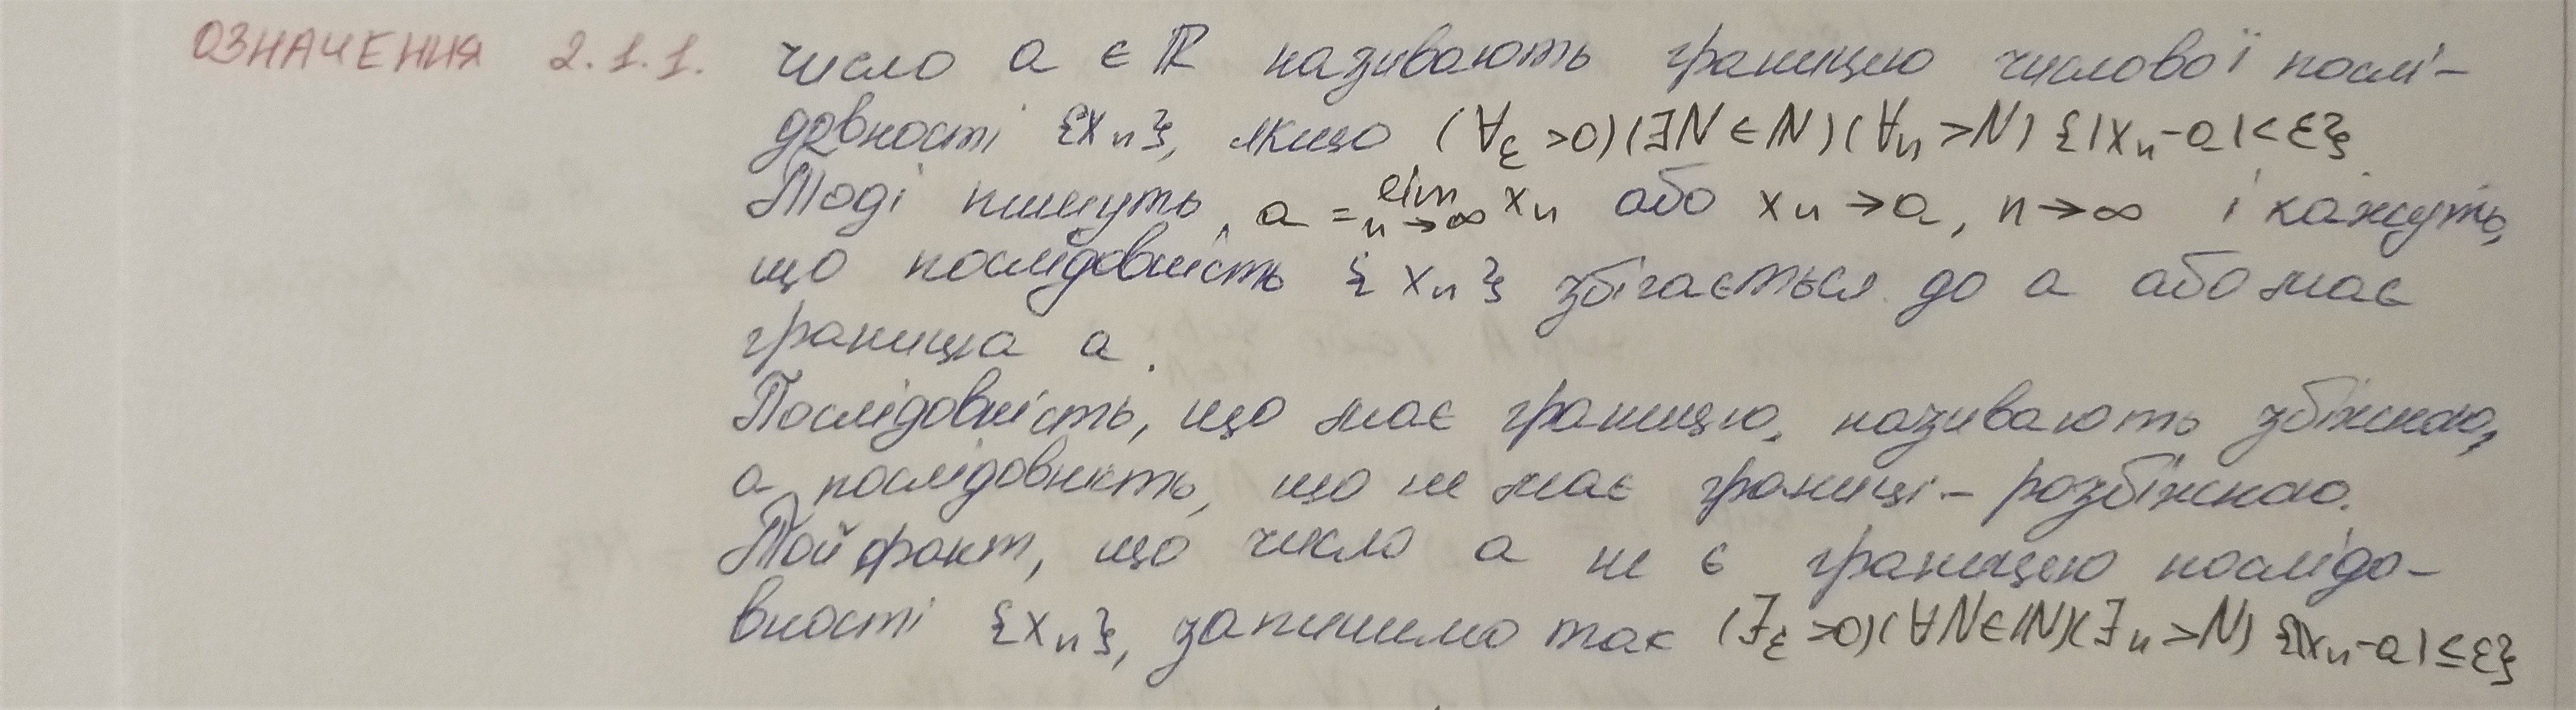 ОЗНАЧЕННЯ 2.1.1. число a ∈ ℝ називають границею числової послі-
довності {xₙ}, якщо (∀ε >0)(∃N∈ℕ)(∀n >N) {|xₙ-a|<ε}
Тоді пишуть, a = lim n→∞ xₙ або xₙ→a, n→∞ і кажуть,
що послідовність {xₙ} збігається до a або має
границя a.
Послідовність, що має границю, називають збіжною,
а послідовність, що не має границі – розбіжною.
Той факт, що число a не є границею послідо-
вності {xₙ}, запишемо так (∃ε >0)(∀N∈ℕ)(∃n >N) {|xₙ-a|≤ε}